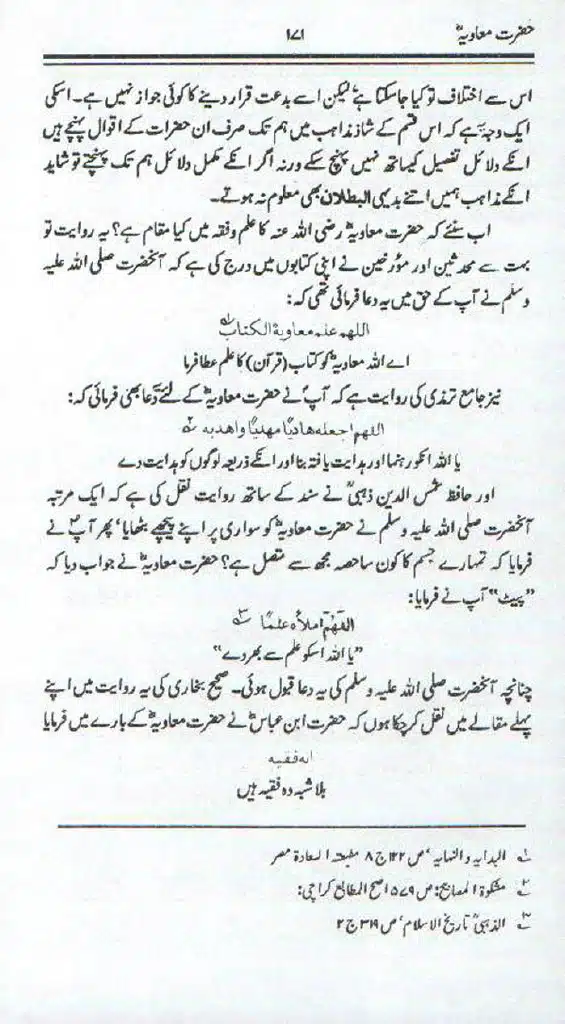 حضرت معاویہؓ ۱۷۱
اس سے اختلاف تو کیا جاسکتا ہے لیکن اسے بدعت قرار دینے کا کوئی جواز نہیں ہے۔ اسکی
ایک وجہ یہ ہے کہ اس قسم کے شاذ مذاہب میں ہم تک صرف ان حضرات کے اقوال پہنچے ہیں
انکے دلائل تفصیل کیساتھ نہیں پہنچ سکے ورنہ اگر انکے مکمل دلائل ہم تک پہنچتے تو شاید
انکے مذاہب ہمیں اتنے بدیہی البطلان بھی معلوم نہ ہوتے۔
اب سنئے کہ حضرت معاویہ رضی اللہ عنہ کا علم وفقہ میں کیا مقام ہے؟ یہ روایت تو
بہت سے محدثین اور مؤرخین نے اپنی کتابوں میں درج کی ہے کہ آنحضرت صلی اللہ علیہ
وسلم نے آپ کے حق میں یہ دعا فرمائی تھی کہ:
اللهم علمه معاوية الكتاب ؎۱
اے اللہ معاویہؓ کو کتاب (قرآن) کا علم عطا فرما
نیز جامع ترمذی کی روایت ہے کہ آپؐ نے حضرت معاویہؓ کے لئے یہ دعا بھی فرمائی کہ:
اللهم اجعله هاديًا مهديًا واهد به ؎۲
یا اللہ انکو رہنما اور ہدایت یافتہ بنا اور انکے ذریعہ لوگوں کو ہدایت دے
اور حافظ شمس الدین ذہبیؒ نے سند کے ساتھ روایت نقل کی ہے کہ ایک مرتبہ
آنحضرت صلی اللہ علیہ وسلم نے حضرت معاویہؓ کو سواری پر اپنے پیچھے بٹھایا، پھر آپؐ نے
فرمایا کہ تمہارے جسم کا کون سا حصہ مجھ سے متصل ہے؟ حضرت معاویہؓ نے جواب دیا کہ
"پیٹ" آپ نے فرمایا:
اللّٰهُمّ املأه علمًا ؎۳
"یا اللہ اسکو علم سے بھر دے"
چنانچہ آنحضرت صلی اللہ علیہ وسلم کی یہ دعا قبول ہوئی۔ صحیح بخاری کی یہ روایت میں اپنے
پہلے مقالے میں نقل کرچکا ہوں کہ حضرت ابن عباسؓ نے حضرت معاویہؓ کے بارے میں فرمایا
انه فقيه
بلاشبہ وہ فقیہ ہیں
؎۱ البدایہ والنہایہ، ص ۱۲۲ ج ۸ مطبعۃ السعادۃ مصر
؎۲ مشکوۃ المصابیح: ص ۵۷۹ اصح المطابع کراچی:
؎۳ الذہبیؒ تاریخ الاسلام، ص ۳۱۹ ج ۲